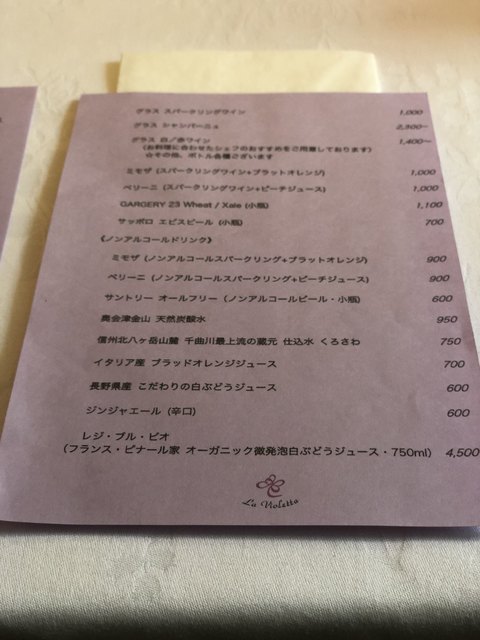 グラス スパークリングワイン 1,000
グラス シャンパーニュ 2,500~
グラス 白/赤ワイン 1,400~
(お料理に合わせたシェフのおすすめをご用意しております)
☆その他、ボトル各種ございます
ミモザ (スパークリングワイン+ブラットオレンジ) 1,000
ベリーニ (スパークリングワイン+ピーチジュース) 1,000
GARGERY 23 Wheat / Xale (小瓶) 1,100
サッポロ エビスビール (小瓶) 700
《ノンアルコールドリンク》
ミモザ (ノンアルコールスパークリング+ブラットオレンジ) 900
ベリーニ (ノンアルコールスパークリング+ピーチジュース) 900
サントリー オールフリー (ノンアルコールビール・小瓶) 600
奥会津金山 天然炭酸水 950
信州北八ヶ岳山麓 千曲川最上流の蔵元 仕込水 くろさわ 750
イタリア産 ブラッドオレンジジュース 700
長野県産 こだわりの白ぶどうジュース 600
ジンジャエール (辛口) 600
レジ・ブル・ビオ
(フランス・ピナール家 オーガニック微発泡白ぶどうジュース・750ml) 4,500
La Violetta